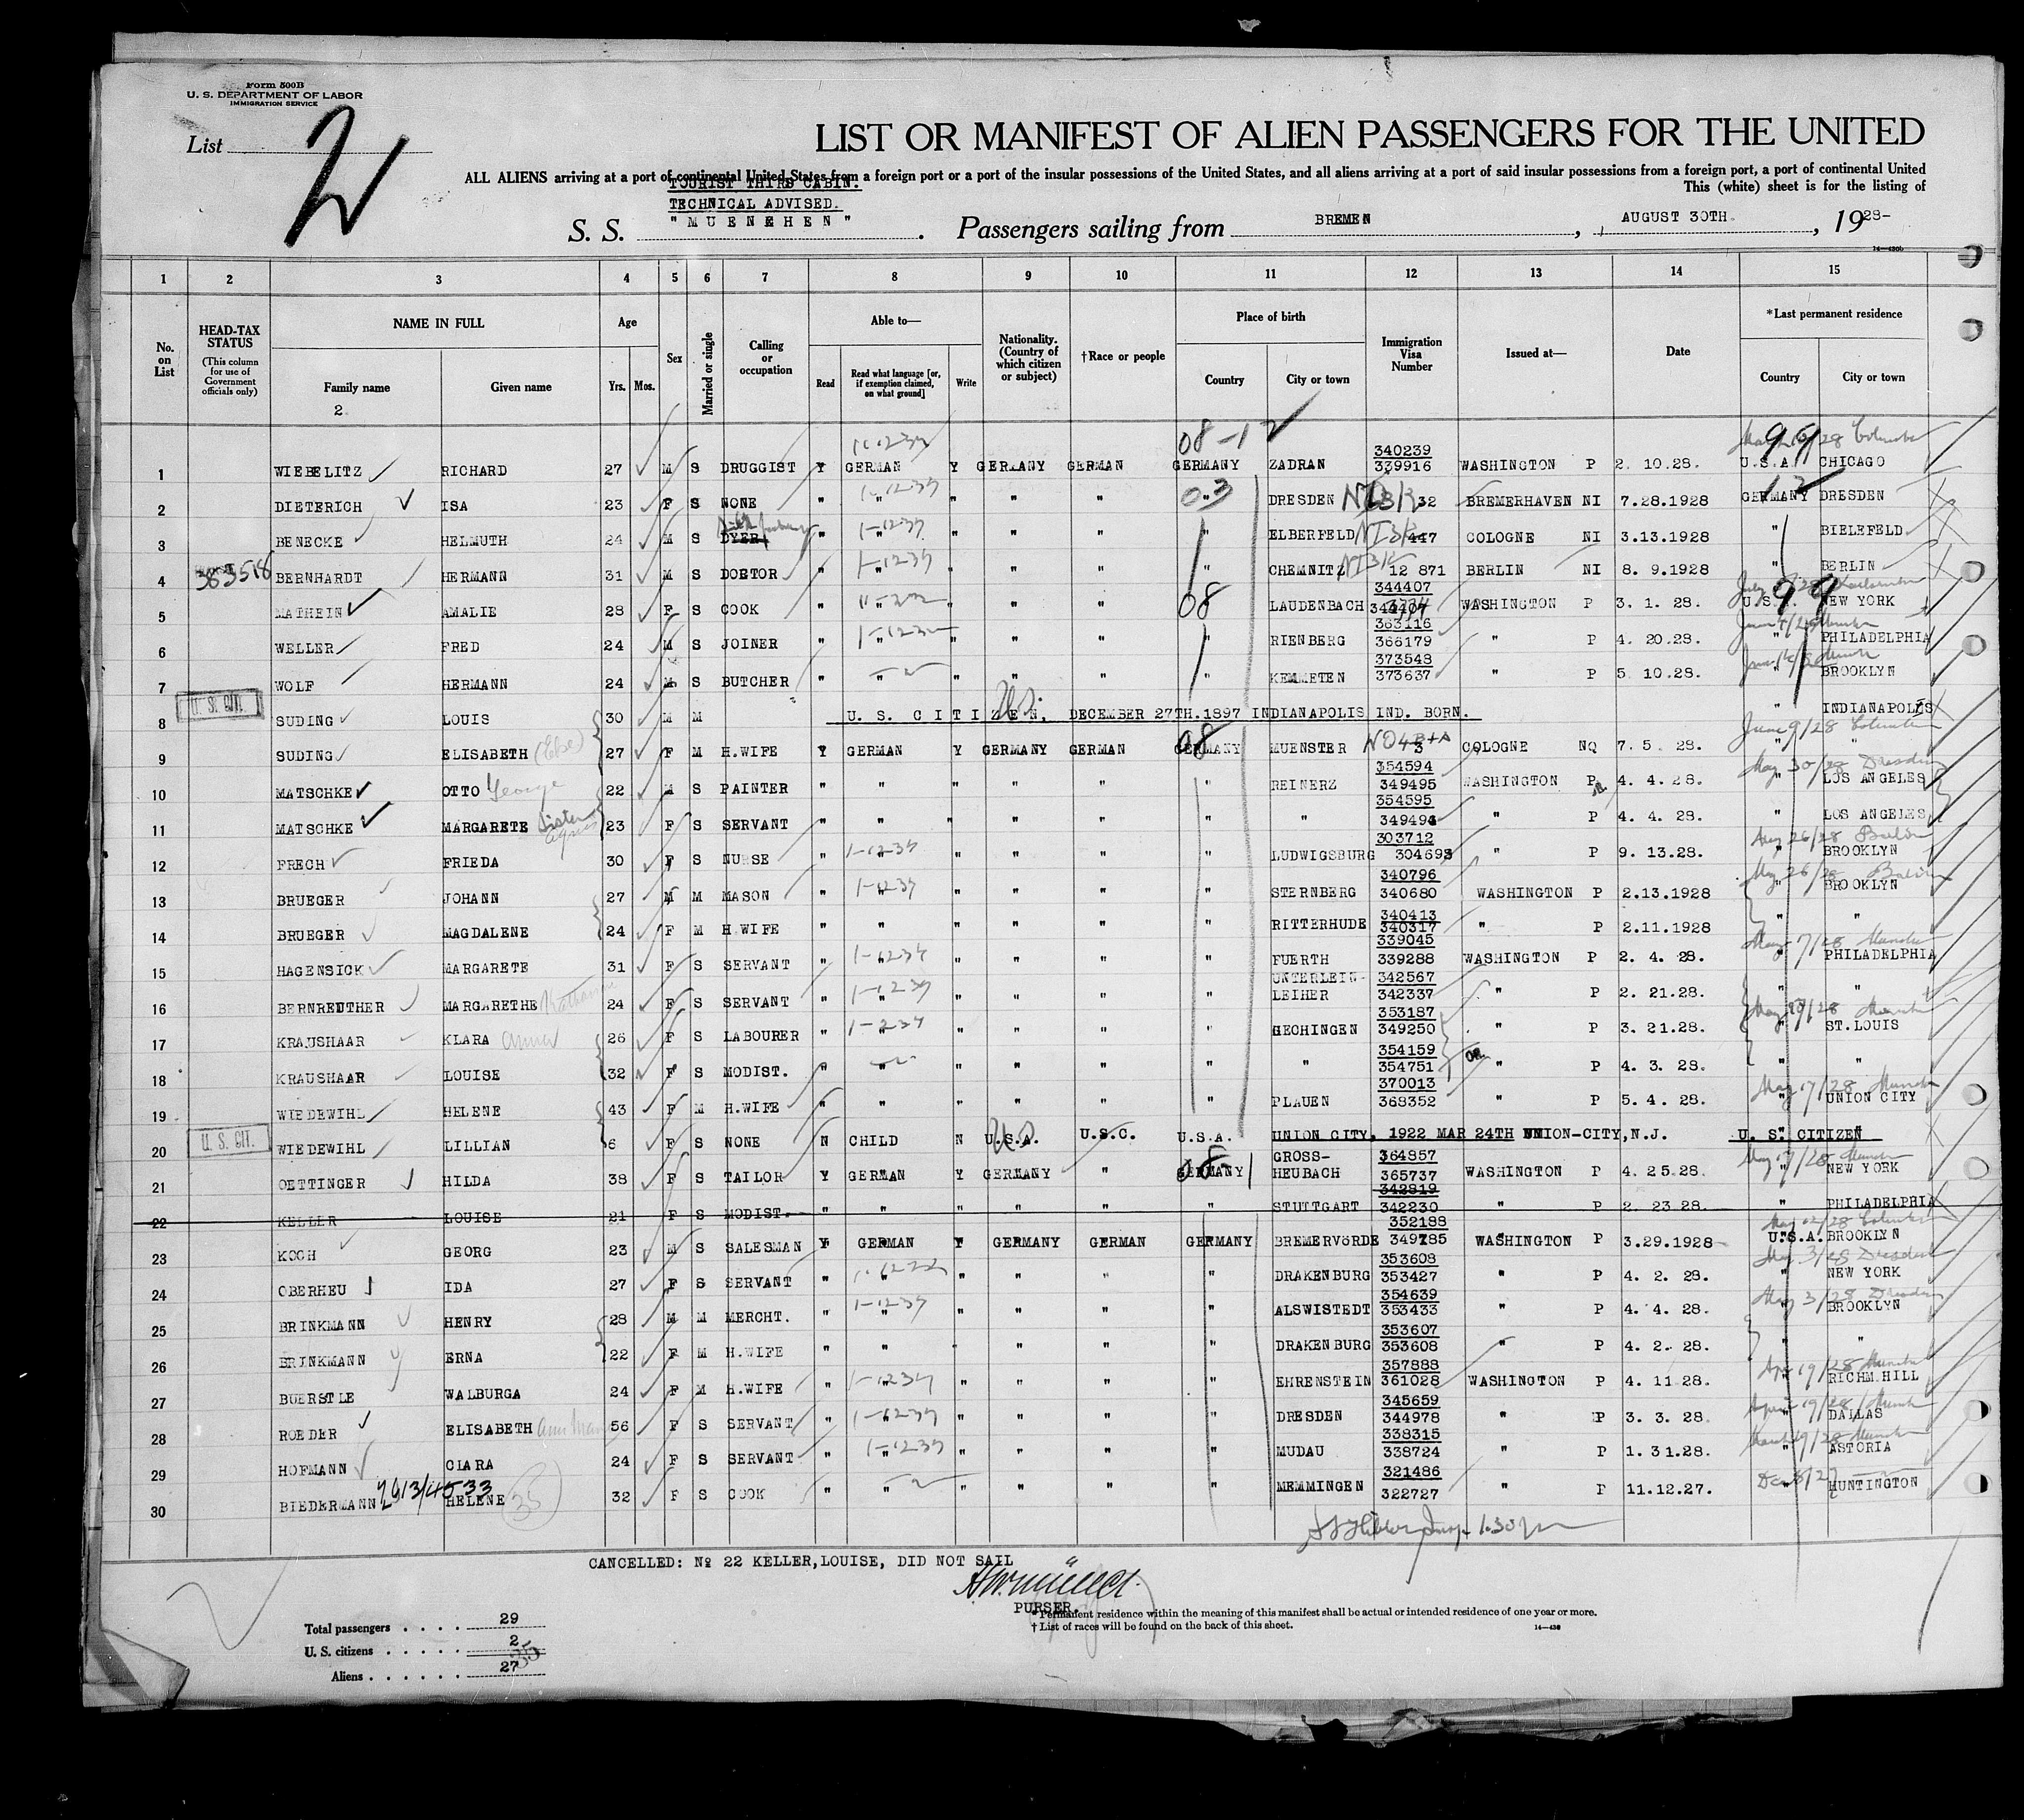 Form 500B
U. S. DEPARTMENT OF LABOR
IMMIGRATION SERVICE
List 2
LIST OR MANIFEST OF ALIEN PASSENGERS FOR THE UNITED
ALL ALIENS arriving at a port of continental United States from a foreign port or a port of the insular possessions of the United States, and all aliens arriving at a port of said insular possessions from a foreign port, a port of continental United
This (white) sheet is for the listing of
TOURIST THIRD CABIN.
TECHNICAL ADVISED.
S. S. "MUENEHEN". Passengers sailing from BREMEN, AUGUST 30TH., 1928-
1 2 3 4 5 6 7 8 9 10 11 12 13 14 15
No. on List
HEAD-TAX STATUS (This column for use of Government officials only)
NAME IN FULL Family name Given name
Age Yrs. Mos.
Sex
Married or single
Calling or occupation
Able to— Read Read what language [or, if exemption claimed, on what ground] Write
Nationality. (Country of which citizen or subject)
†Race or people
Place of birth Country City or town
Immigration Visa Number
Issued at—
Date
*Last permanent residence Country City or town
2
08-12 99
1 WIEBELITZ RICHARD 27 M S DRUGGIST Y GERMAN Y GERMANY GERMAN GERMANY ZADRAN 340239 339916 WASHINGTON P 2. 10.28. U.S.A. CHICAGO
2 DIETERICH ISA 23 F S NONE " " " " " 03 " DRESDEN 32 BREMERHAVEN NI 7.28.1928 GERMANY DRESDEN
3 BENECKE HELMUTH 24 M S DYER " " " " " " ELBERFELD 447 COLOGNE NI 3.13.1928 " BIELEFELD
4 383518 BERNHARDT HERMANN 31 M S DOCTOR " " " " " " CHEMNITZ 12 871 BERLIN NI 8. 9.1928 " BERLIN
5 MATHEIN AMALIE 28 F S COOK " " " " " 08 LAUDENBACH 344407 344407 WASHINGTON P 3. 1. 28. U.S.A. 99 NEW YORK
6 WELLER FRED 24 M S JOINER " " " " " " RIENBERG 363116 366179 " P 4. 20.28. " PHILADELPHIA
7 WOLF HERMANN 24 M S BUTCHER " " " " " " KEMMETEN 373548 373637 " P 5 10.28. " BROOKLYN
8 U. S. CIT. SUDING LOUIS 30 M M U. S. CITIZEN, DECEMBER 27TH.1897 INDIANAPOLIS IND. BORN. " INDIANAPOLIS
9 SUDING ELISABETH (Else) 27 F M H.WIFE Y GERMAN Y GERMANY GERMAN GERMANY 08 MUENSTER 3 COLOGNE NQ 7. 5. 28. " " June 9/28 Columbus
10 MATSCHKE OTTO George 22 M S PAINTER " " " " " " REINERZ 354594 349495 WASHINGTON P 4. 4. 28. " LOS ANGELES May 30/28 Dresden
11 MATSCHKE MARGARETE sister 23 F S SERVANT " " " " " " " 354595 349494 " P 4. 4. 28. " LOS ANGELES
12 FRECH FRIEDA 30 F S NURSE " " " " " " LUDWIGSBURG 303712 304693 " P 9. 13.28. " BROOKLYN
13 BRUEGER JOHANN 27 M M MASON " " " " " " STERNBERG 340796 340680 WASHINGTON P 2.13.1928 " BROOKLYN
14 BRUEGER MAGDALENE 24 F M H.WIFE " " " " " " RITTERHUDE 340413 340317 " P 2.11.1928 " "
15 HAGENSICK MARGARETE 31 F S SERVANT " " " " " " FUERTH 339045 339288 WASHINGTON P 2. 4. 28. " PHILADELPHIA
16 BERNREUTHER MARGARETHE 24 F S SERVANT " " " " " " UNTERLEIN-LEIHER 342567 342337 " P 2. 21.28. " "
17 KRAUSHAAR KLARA Anna 26 F S LABOURER " " " " " " GECHINGEN 353187 349250 " P 3. 21.28. " ST.LOUIS
18 KRAUSHAAR LOUISE 32 F S MODIST. " " " " " " " 354159 354751 " P 4. 3. 28. " "
19 WIEDEWIHL HELENE 43 F M H.WIFE " " " " " " PLAUEN 370013 368352 " P 5. 4. 28. " UNION CITY
20 U. S. CIT. WIEDEWIHL LILLIAN 6 F S NONE N CHILD N U.S.A. U.S.C. U.S.A. UNION CITY, 1922 MAR 24TH UNION-CITY,N.J. U. S. CITIZEN
21 OETTINGER HILDA 38 F S TAILOR Y GERMAN Y GERMANY " GERMANY 08 GROSS-HEUBACH 364857 365737 WASHINGTON P 4. 25.28. " NEW YORK
22 KELLER LOUISE 21 F S MODIST. " " " " " " STUTTGART 342819 342230 " P 2. 23 28. " PHILADELPHIA
23 KOCH GEORG 23 M S SALESMAN Y GERMAN Y GERMANY GERMAN GERMANY BREMERVÖRDE 352188 349785 WASHINGTON P 3.29.1928 U.S.A. BROOKLYN
24 OBERHEU IDA 27 F S SERVANT " " " " " " DRAKENBURG 353608 353427 " P 4. 2. 28. " NEW YORK
25 BRINKMANN HENRY 28 M M MERCHT. " " " " " " ALSWISTEDT 354639 353433 " P 4. 4. 28. " BROOKLYN
26 BRINKMANN ERNA 22 F M H.WIFE " " " " " " DRAKENBURG 353607 353608 " P 4. 2. 28. " "
27 BUERSTLE WALBURGA 24 F M H.WIFE " " " " " " EHRENSTEIN 357888 361028 WASHINGTON P 4. 11 28. " RICHM.HILL
28 ROEDER ELISABETH 56 F S SERVANT " " " " " " DRESDEN 345659 344978 " P 3. 3. 28. " DALLAS
29 HOFMANN CLARA 24 F S SERVANT " " " " " " MUDAU 338315 338724 " P 1. 31.28. " ASTORIA
30 BIEDERMANN HELENE 32 F S COOK " " " " " " MEMMINGEN 321486 322727 " P 11.12.27. " HUNTINGTON
CANCELLED: No 22 KELLER,LOUISE, DID NOT SAIL
PURSER.
Total passengers . . . . 29
U. S. citizens . . . . . 2
Aliens . . . . . . 27
* Permanent residence within the meaning of this manifest shall be actual or intended residence of one year or more.
† List of races will be found on the back of this sheet.